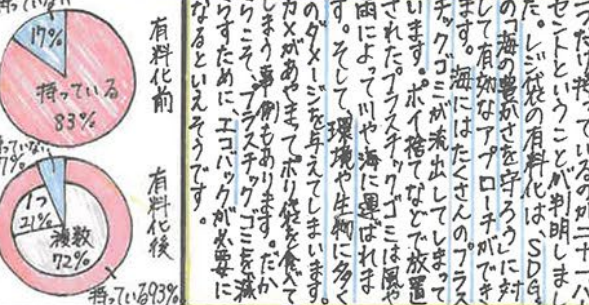 つだけ持っているのが二十一パ
セントということが判明しまし
た。レジ袋の有料化は、SDG
の「海の豊かさを守ろう」に対
して有効なアプローチができ
ます。海にはたくさんのプラス
チックゴミが流出してしまって
います。ポイ捨てなどで放置
されたプラスチックゴミは風や
雨によって川や海に運ばれま
す。そして、環境や生物に多く
のダメージを与えてしまいます。
カメがあやまってポリ袋を食べて
しまう事例もあります。だか
らこそ、プラスチックゴミを減
らすために、エコバックが必要に
なるといえそうです。
有料化前
持っていない
17%
持っている
83%
有料化後
持っていない
7%
1つ
21%
複数
72%
持っている93%